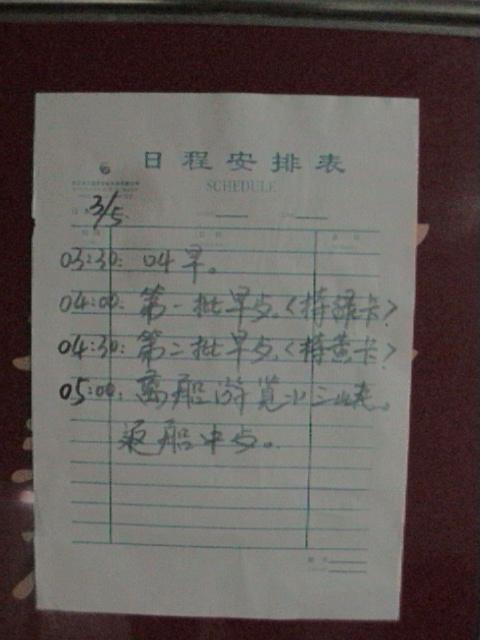 日程安排表
SCHEDULE
3/5
03:30: 叫早。
04:00: 第一批早点〈持绿卡〉
04:30: 第二批早点〈持黄卡〉
05:00: 离船游览小三峡。
返船中点。